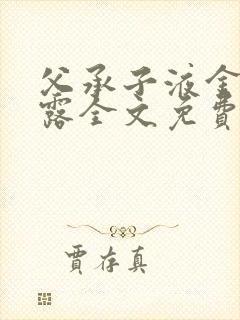 父承子液金
露全文免費
賈存真